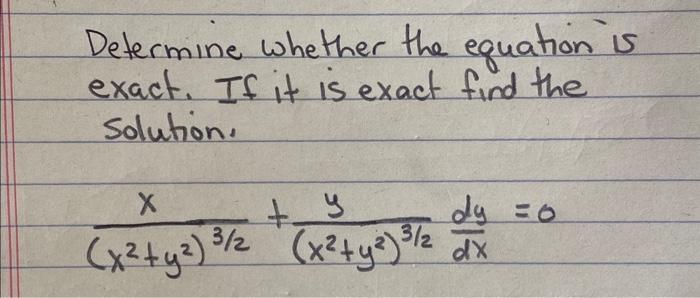 Determine whether the equation is
exact. If it is exact find the
solution.
x/(x²+y²)^3/2 + y/(x²+y²)^3/2 dy/dx = 0